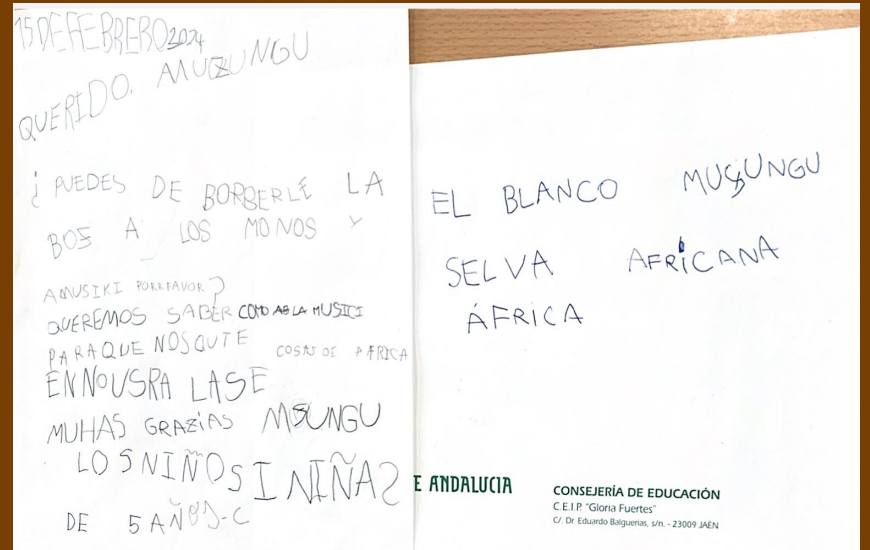 15 DE FEBRERO 2024
QUERIDO. MUZUNGU
¿PUEDES DE BORBERLE LA
BOS A LOS MONOS Y
AMUSIKI PORFAVOR?
QUEREMOS SABER COMO ABLA MUSICI
PARA QUE NOS CUTE COSAS DE AFRICA
EN NOUSRA LASE
MUHAS GRAZIAS MSUNGU
LOS NIÑOS I NIÑAS
DE 5 AÑOS-C
EL BLANCO MUSUNGU
SELVA AFRICANA
ÁFRICA
E ANDALUCIA
CONSEJERÍA DE EDUCACIÓN
C.E.I.P. "Gloria Fuertes"
C/. Dr. Eduardo Balguerias, s/n. - 23009 JAÉN